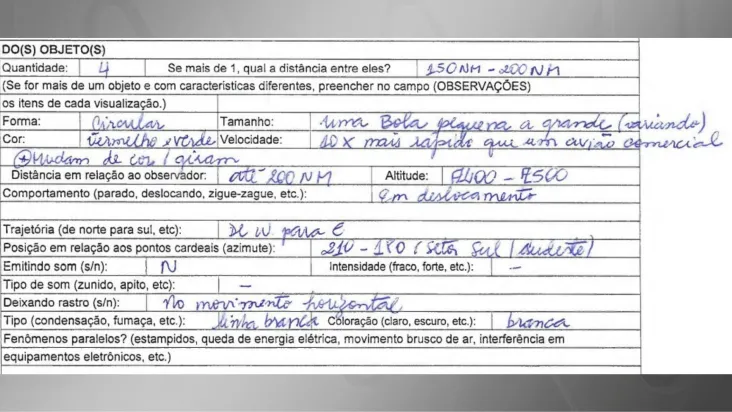 DO(S) OBJETO(S)
Quantidade: 4 Se mais de 1, qual a distância entre eles? 150NM - 200NM
(Se for mais de um objeto e com caracteristicas diferentes, preencher no campo (OBSERVAÇÕES)
os itens de cada visualização.)
Forma: Circular Tamanho: uma Bola pequena a grande (variando)
Cor: vermelho e verde Velocidade: 10 x mais rapido que um avião comercial
Mudam de cor / giram
Distância em relação ao observador: até 200 NM Altitude: - 7500
Comportamento (parado, deslocando, zigue-zague, etc.): Em deslocamento
Trajetória (de norte para sul, etc): De W para E
Posição em relação aos pontos cardeais (azimute): 210 - 180 (setor sul / sudeste)
Emitindo som (s/n): N Intensidade (fraco, forte, etc.): -
Tipo de som (zunido, apito, etc): -
Deixando rastro (s/n): No movimento horizontal
Tipo (condensação, fumaça, etc.): linha branca Coloração (claro, escuro, etc.): branca
Fenômenos paralelos? (estampidos, queda de energia elétrica, movimento brusco de ar, interferência em
equipamentos eletrônicos, etc.)